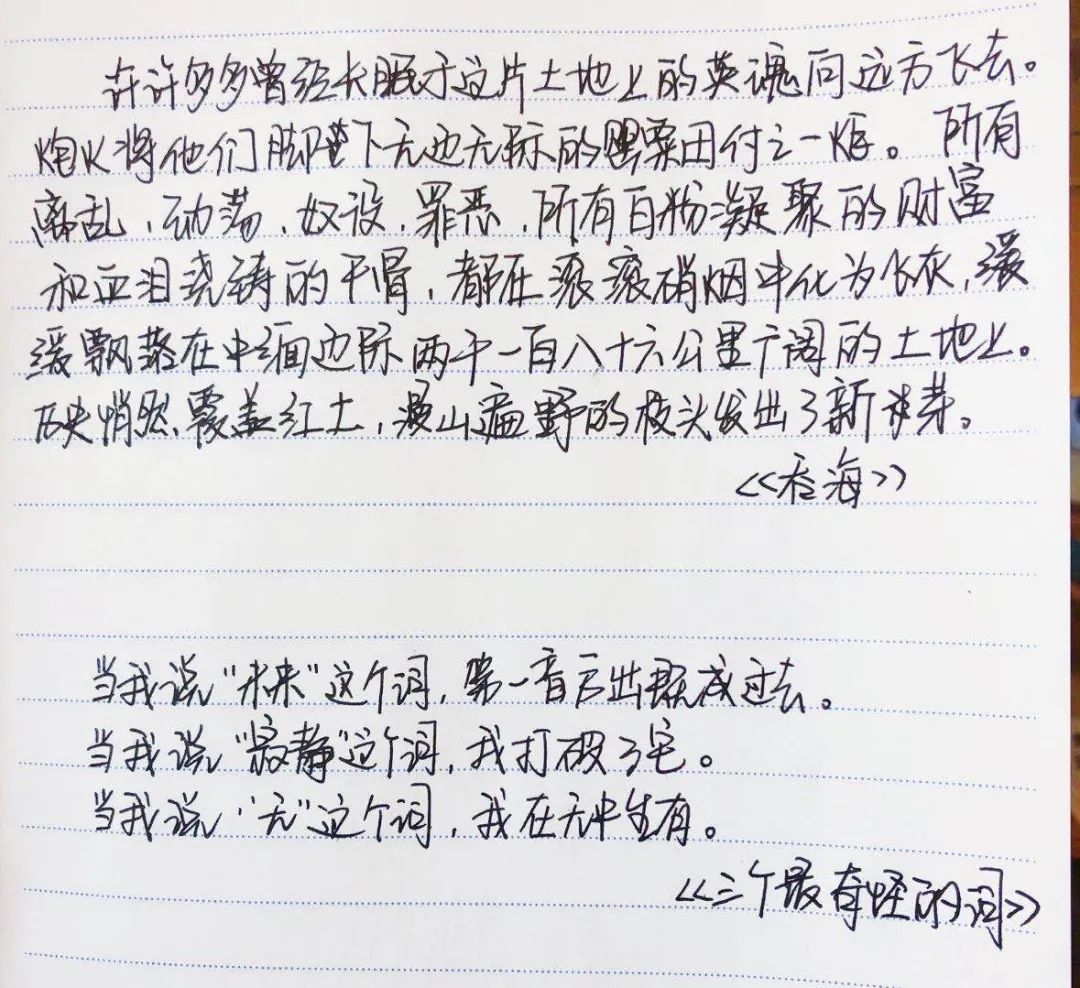 许许多多曾经长眠于这片土地上的英魂向远方飞去。
炮火将他们脚踏下无边无际的罂粟田付之一炬。所有
离乱、动荡、奴役、罪恶,所有白粉凝聚的财富
和血泪浇铸的干骨,都在滚滚硝烟中化为飞灰,缓
缓飘落在中缅边际两千一百八十六公里广阔的土地上。
灰烬悄然覆盖红土,漫山遍野的枝头发出了新嫩芽。
《吞海》
当我说“未来”这个词,第一音方出既成过去。
当我说“寂静”这个词,我打破了它。
当我说“无”这个词,我在无中生有。
《三个最奇怪的词》